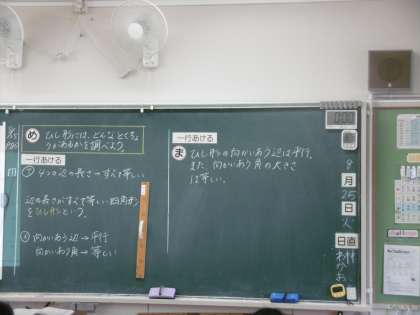 め ひし形には、どんなとくちょ
うがあるかを調べよう。
一行あける
4つの辺の長さ→すべて等しい
辺の長さがすべて等しい四角形
をひし形という。
向かいあう辺→平行
向かいあう角→等しい
一行あける
ま ひし形の向かいあう辺は平行。
また、向かいあう角の大きさ
は等しい。
8
月
25
日
火
日直